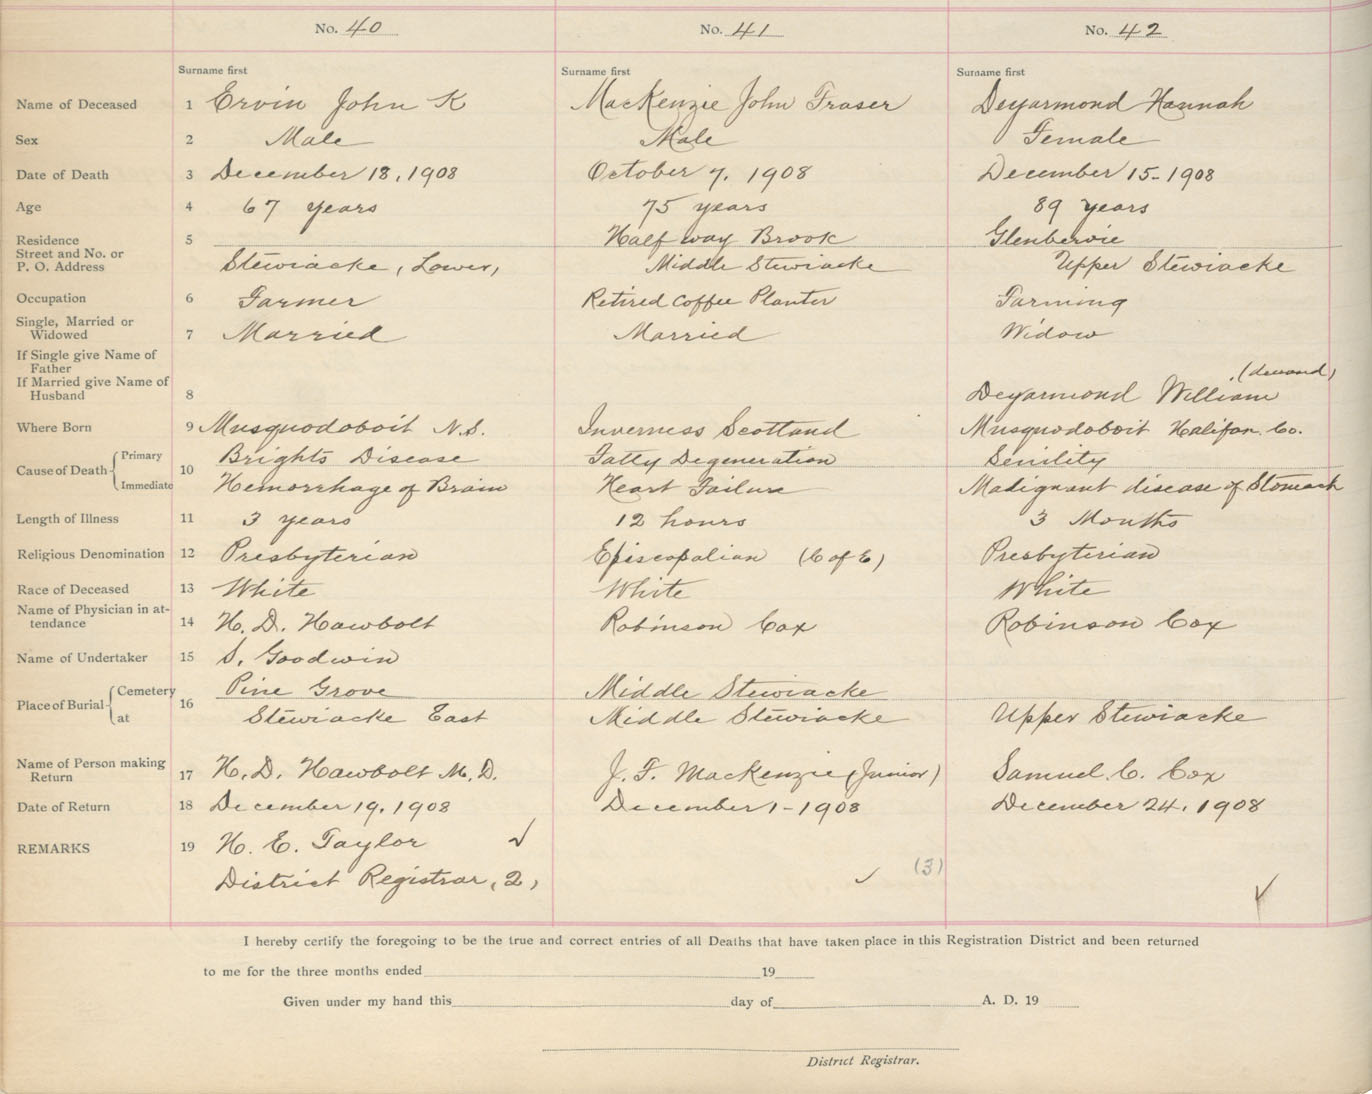 No. 40 No. 41 No. 42
Surname first Surname first Surname first
Name of Deceased 1 Ervin John K MacKenzie John Fraser Deyarmond Hannah
Sex 2 Male Male Female
Date of Death 3 December 18, 1908 October 7, 1908 December 15- 1908
Age 4 67 years 75 years 89 years
Residence 5 Half way Brook Glenbervie
Street and No. or
P. O. Address Stewiacke, Lower, Middle Stewiacke Upper Stewiacke
Occupation 6 Farmer Retired Coffee Planter Farming
Single, Married or
Widowed 7 Married Married Widow
If Single give Name of
Father
If Married give Name of
Husband 8 Deyarmond William
Where Born 9 Musquodoboit N.S. Inverness Scotland Musquodoboit Halifax Co.
Cause of Death Primary Brights Disease Fatty Degeneration Senility
10
Immediate Hemorrhage of Brain Heart Failure Madignant disease of Stomach
Length of Illness 11 3 years 12 hours 3 Months
Religious Denomination 12 Presbyterian Episcopalian (C of E) Presbyterian
Race of Deceased 13 White White White
Name of Physician in at-
tendance 14 H. D. Hawbolt Robinson Cox Robinson Cox
Name of Undertaker 15 S. Goodwin
Place of Burial Cemetery Pine Grove Middle Stewiacke
16
at Stewiacke East Middle Stewiacke Upper Stewiacke
Name of Person making
Return 17 H. D. Hawbolt M. D. J. F. MacKenzie (Junior) Samuel C. Cox
Date of Return 18 December 19, 1908 December 1- 1908 December 24, 1908
REMARKS 19 H. E. Taylor ✓
District Registrar, (2) ✓ (3) ✓
I hereby certify the foregoing to be the true and correct entries of all Deaths that have taken place in this Registration District and been returned
to me for the three months ended 19
Given under my hand this day of A. D. 19
District Registrar.